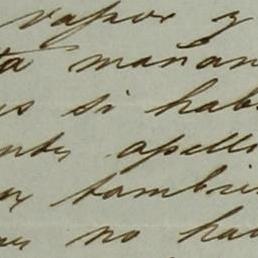 vapor y
ta mañan
s si hab
ntes apelli
tambie
no ha